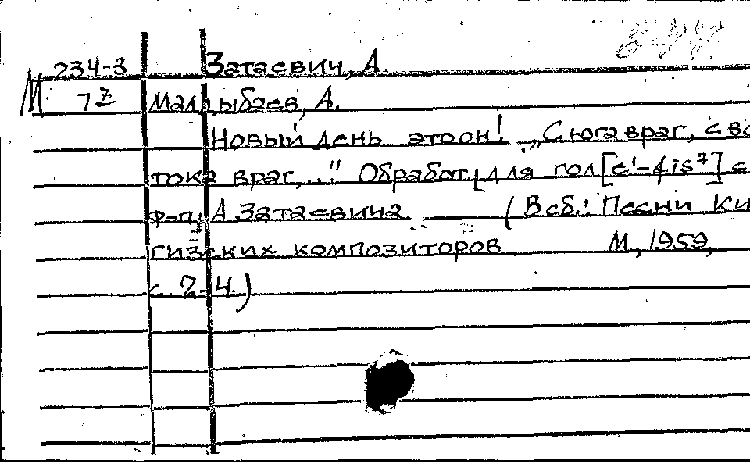 234-3 Затаевич, А.
М 73 Малдыбаев, А.
Новый день этоон! „С юга враг, с вос
тока враг,..." Обработ. для гол[c'-fis²] с
ф-п. А Затаевича. — (В сб.: Песни Кир
гизских композиторов М., 1959,
с. 2-4)